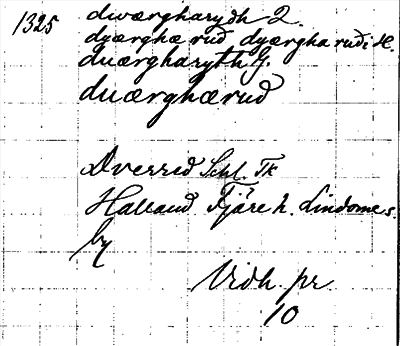 1325 dværgharydh 2.
dyærghæ rud dyærgha rudi H.
duærgharyth J.
duærghærud
Dverred Schl. Tk
Halland Fjäre h. Lindome s.
by
Vidh. pr
10